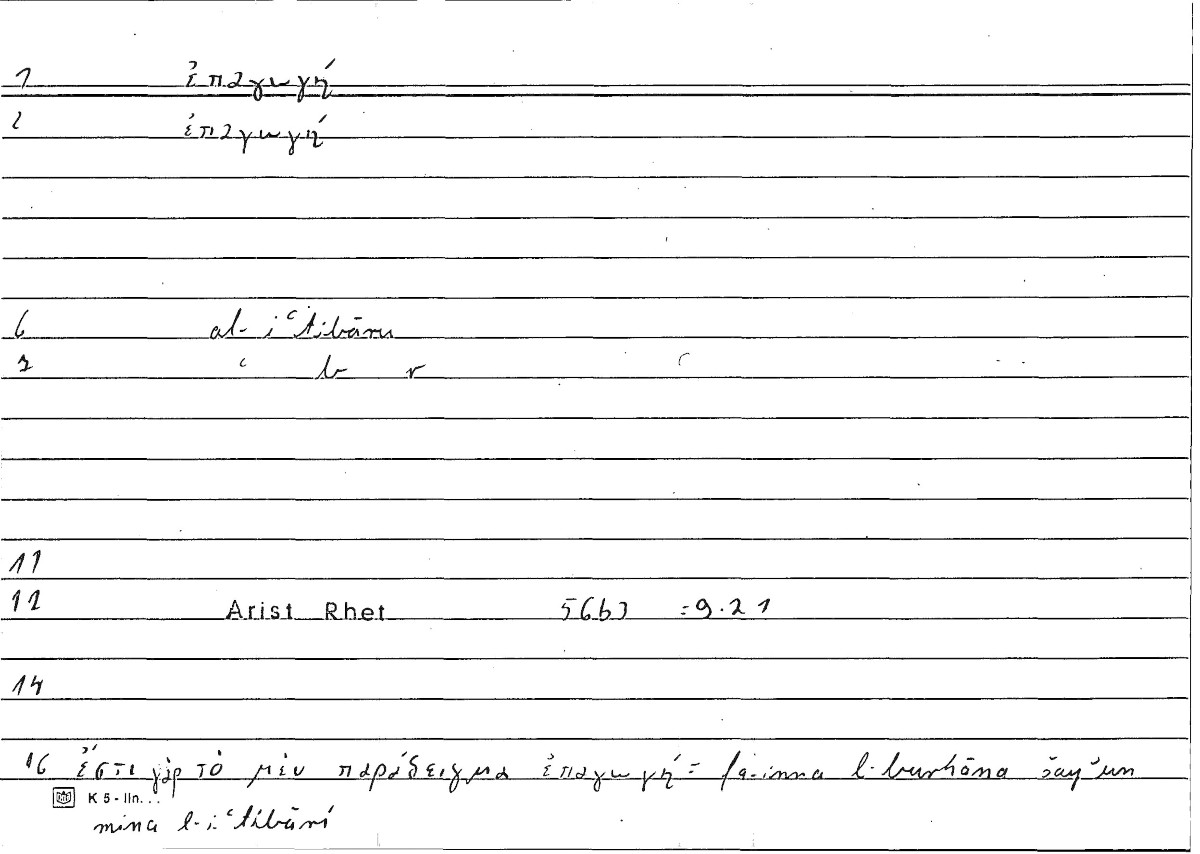 1 ἐπαγωγή
2 ἐπαγωγή
6 al-iʿtibāru
7 ʿ b r
11
12 Arist Rhet 56b3 =9.21
14
16 ἔστι γὰρ τὸ μὲν παράδειγμα ἐπαγωγή = fa-inna l-burhāna šayʾun
K 5 - lln...
mina l-iʿtibāri